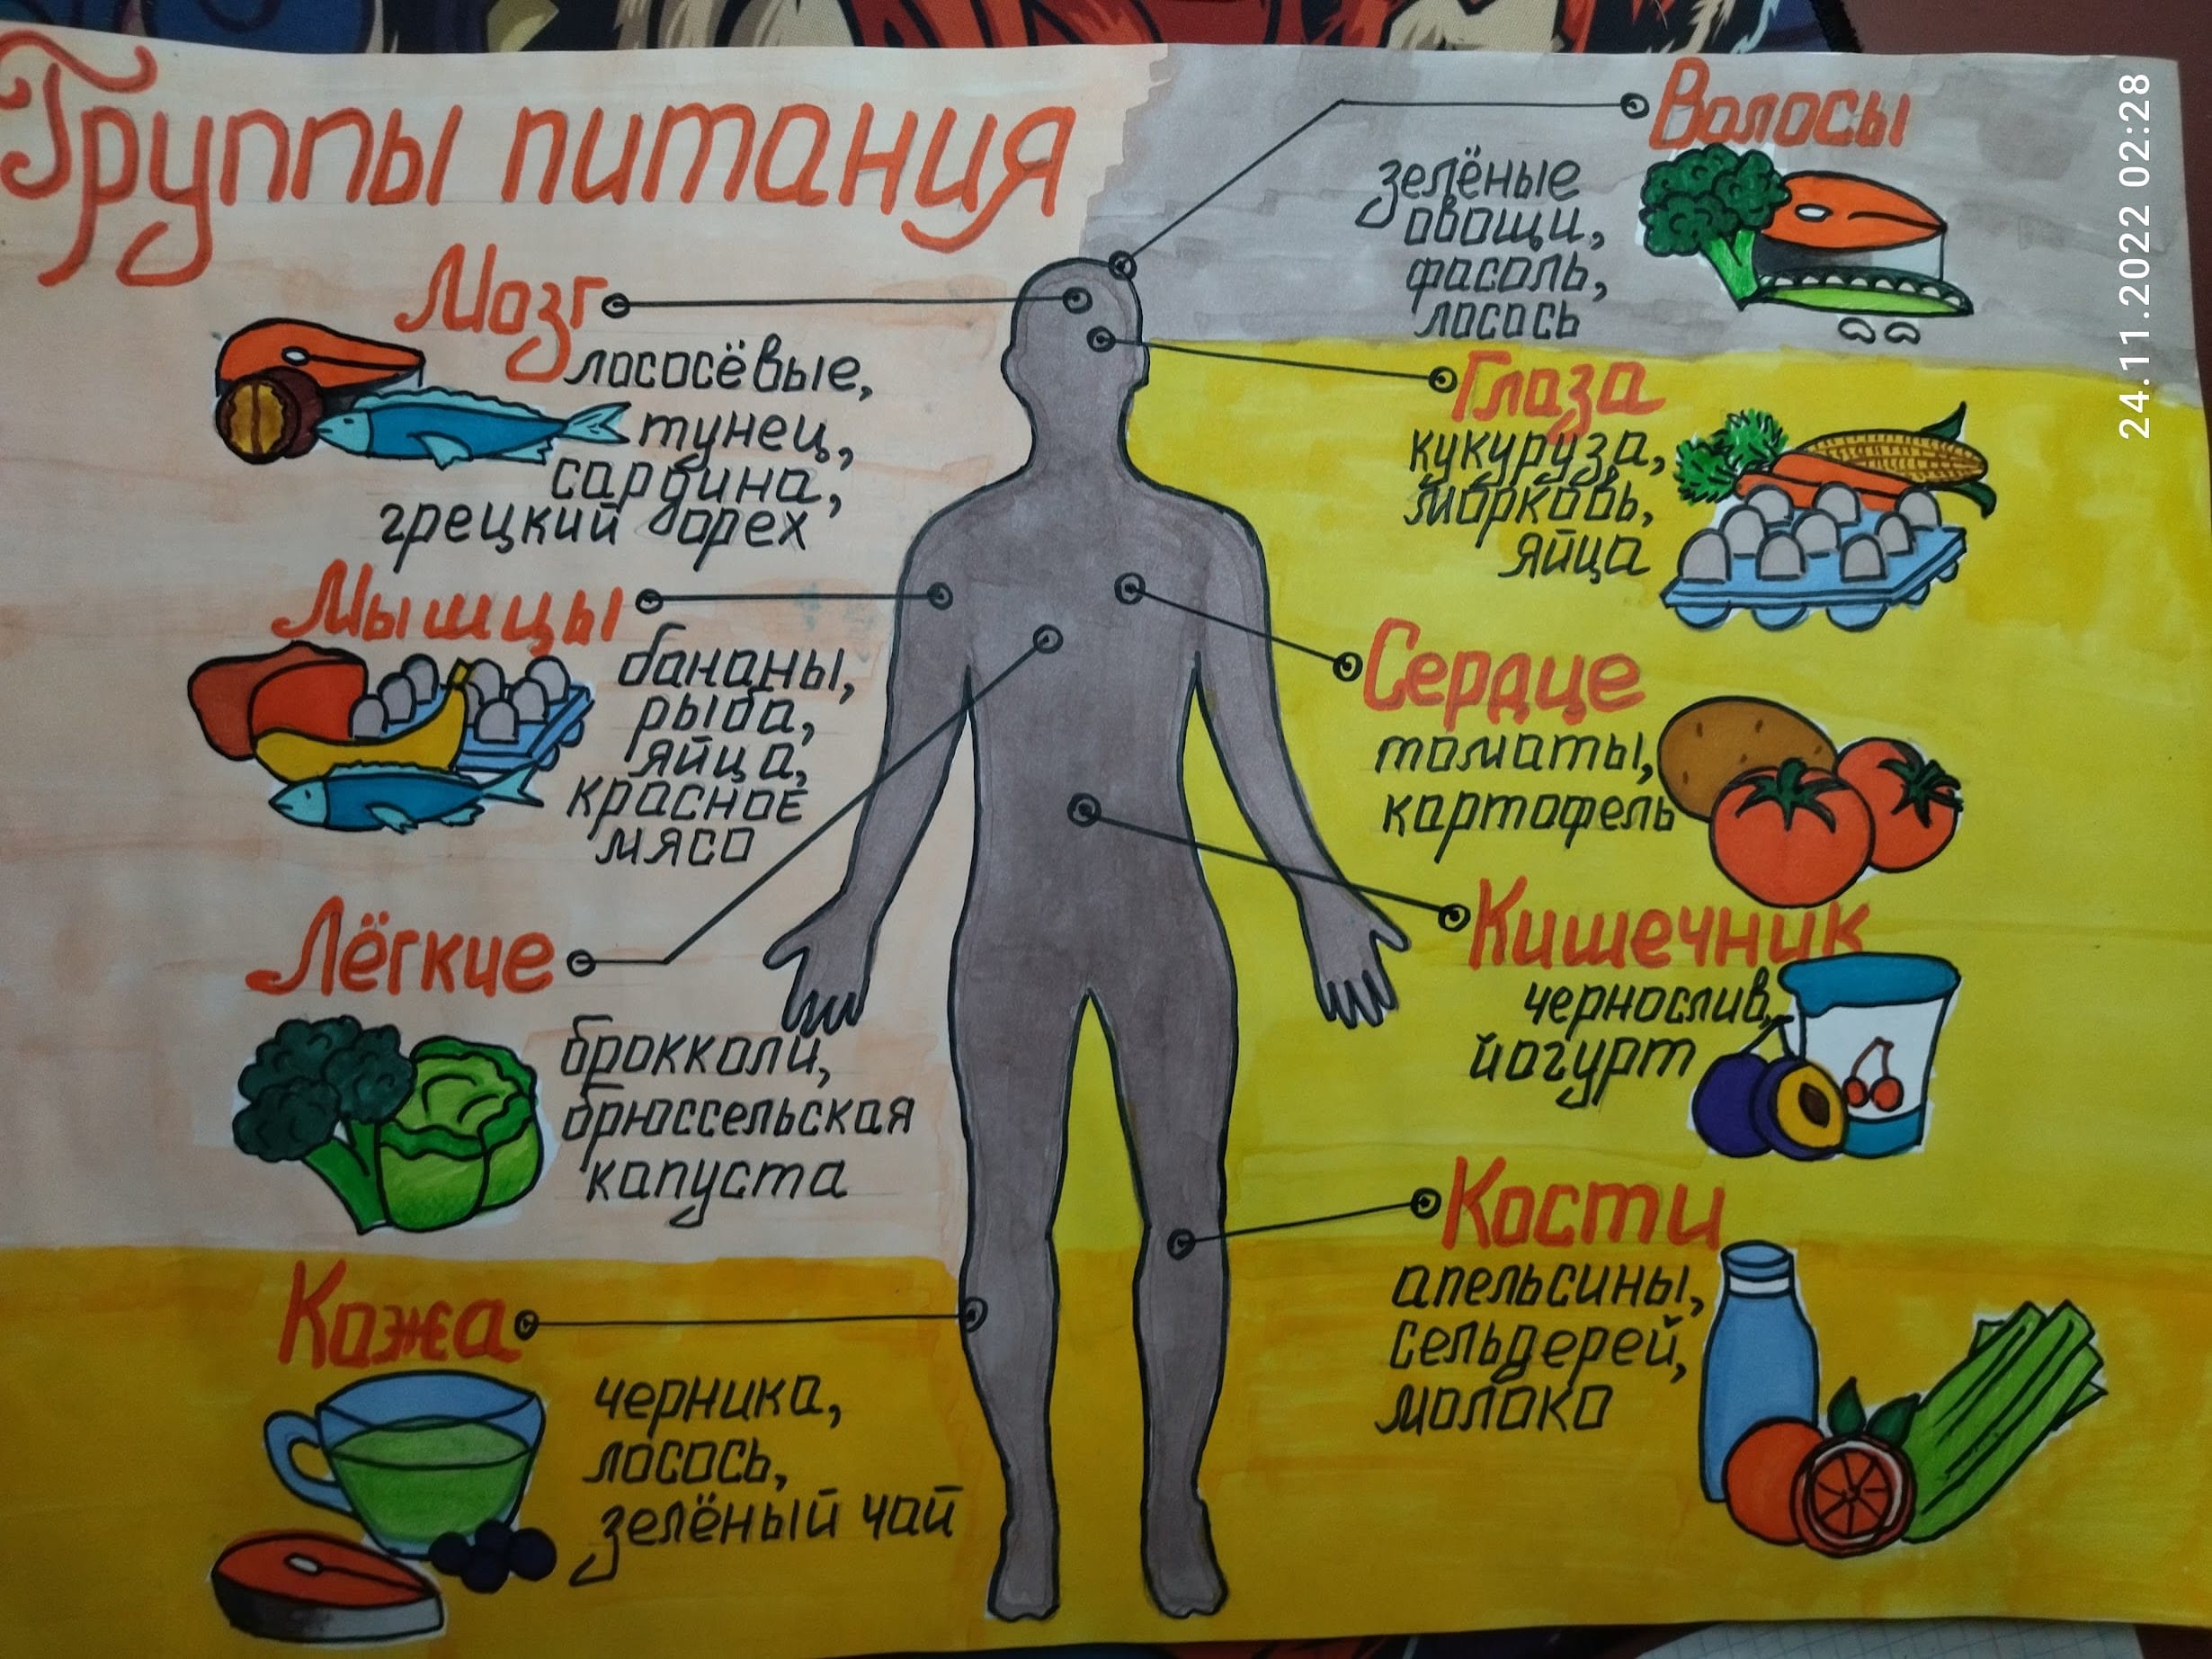 Группы питания
Мозг
лососёвые,
тунец,
сардина,
грецкий орех
Мышцы
бананы,
рыба,
яйца,
красное
мясо
Лёгкие
брокколи,
брюссельская
капуста
Кожа
черника,
лосось,
зелёный чай
Волосы
зелёные
овощи,
фасоль,
лосось
Глаза
кукуруза,
морковь,
яйца
Сердце
томаты,
картофель
Кишечник
чернослив,
йогурт
Кости
апельсины,
сельдерей,
молоко
24.11.2022 02:28